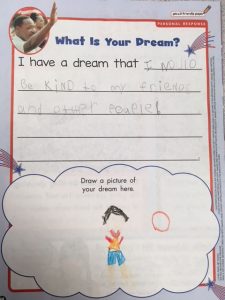 PERSONAL RESPONSE
What Is Your Dream?
I have a dream that I
Be KinD to my friends
and other people!
Draw a picture of
your dream here.